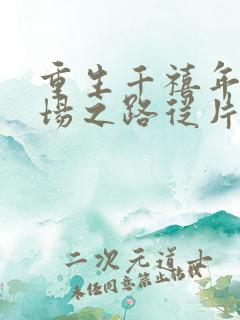 重生千禧年
场之路从片
二次元道士
未经同意禁止转载